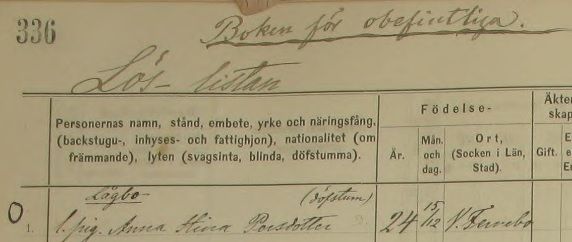 336
Boken för obefintliga.
Lös-listan
Personernas namn, stånd, embete, yrke och näringsfång,
(backstugu-, inhyses- och fattighjon), nationalitet (om
främmande), lyten (svagsinta, blinda, döfstumma).
Födelse-
År.
Mån.
och
dag.
Ort,
(Socken i Län,
Stad).
Äkten
skap
Gift.
E
e
En
Lögbo
(döfstum)
0
1.
f. pig. Anna Stina Persdotter
24
15/12
V. Fernebo